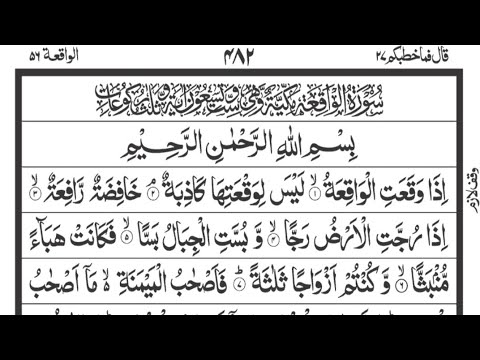 قال فما خطبكم ۲۷ ۴۸۲ الواقعة ۵۶
سُوْرَةُ الْوَاقِعَةِ مَكِّيَّةٌ وَّهِيَ سِتٌّ وَّتِسْعُوْنَ اٰيَةً وَّثَلٰثُ رُكُوْعَاتٍ
بِسْمِ اللّٰهِ الرَّحْمٰنِ الرَّحِيْمِ
اِذَا وَقَعَتِ الْوَاقِعَةُ ۙ﴿۱﴾ لَيْسَ لِوَقْعَتِهَا كَاذِبَةٌ ۘ﴿۲﴾ خَافِضَةٌ رَّافِعَةٌ ۙ﴿۳﴾
وقف لازم
اِذَا رُجَّتِ الْاَرْضُ رَجًّا ۙ﴿۴﴾ وَّ بُسَّتِ الْجِبَالُ بَسًّا ۙ﴿۵﴾ فَكَانَتْ هَبَآءً
مُّنْۢبَثًّا ۙ﴿۶﴾ وَّ كُنْتُمْ اَزْوَاجًا ثَلٰثَةً ؕ﴿۷﴾ فَاَصْحٰبُ الْمَيْمَنَةِ ۙ۬ مَاۤ اَصْحٰبُ